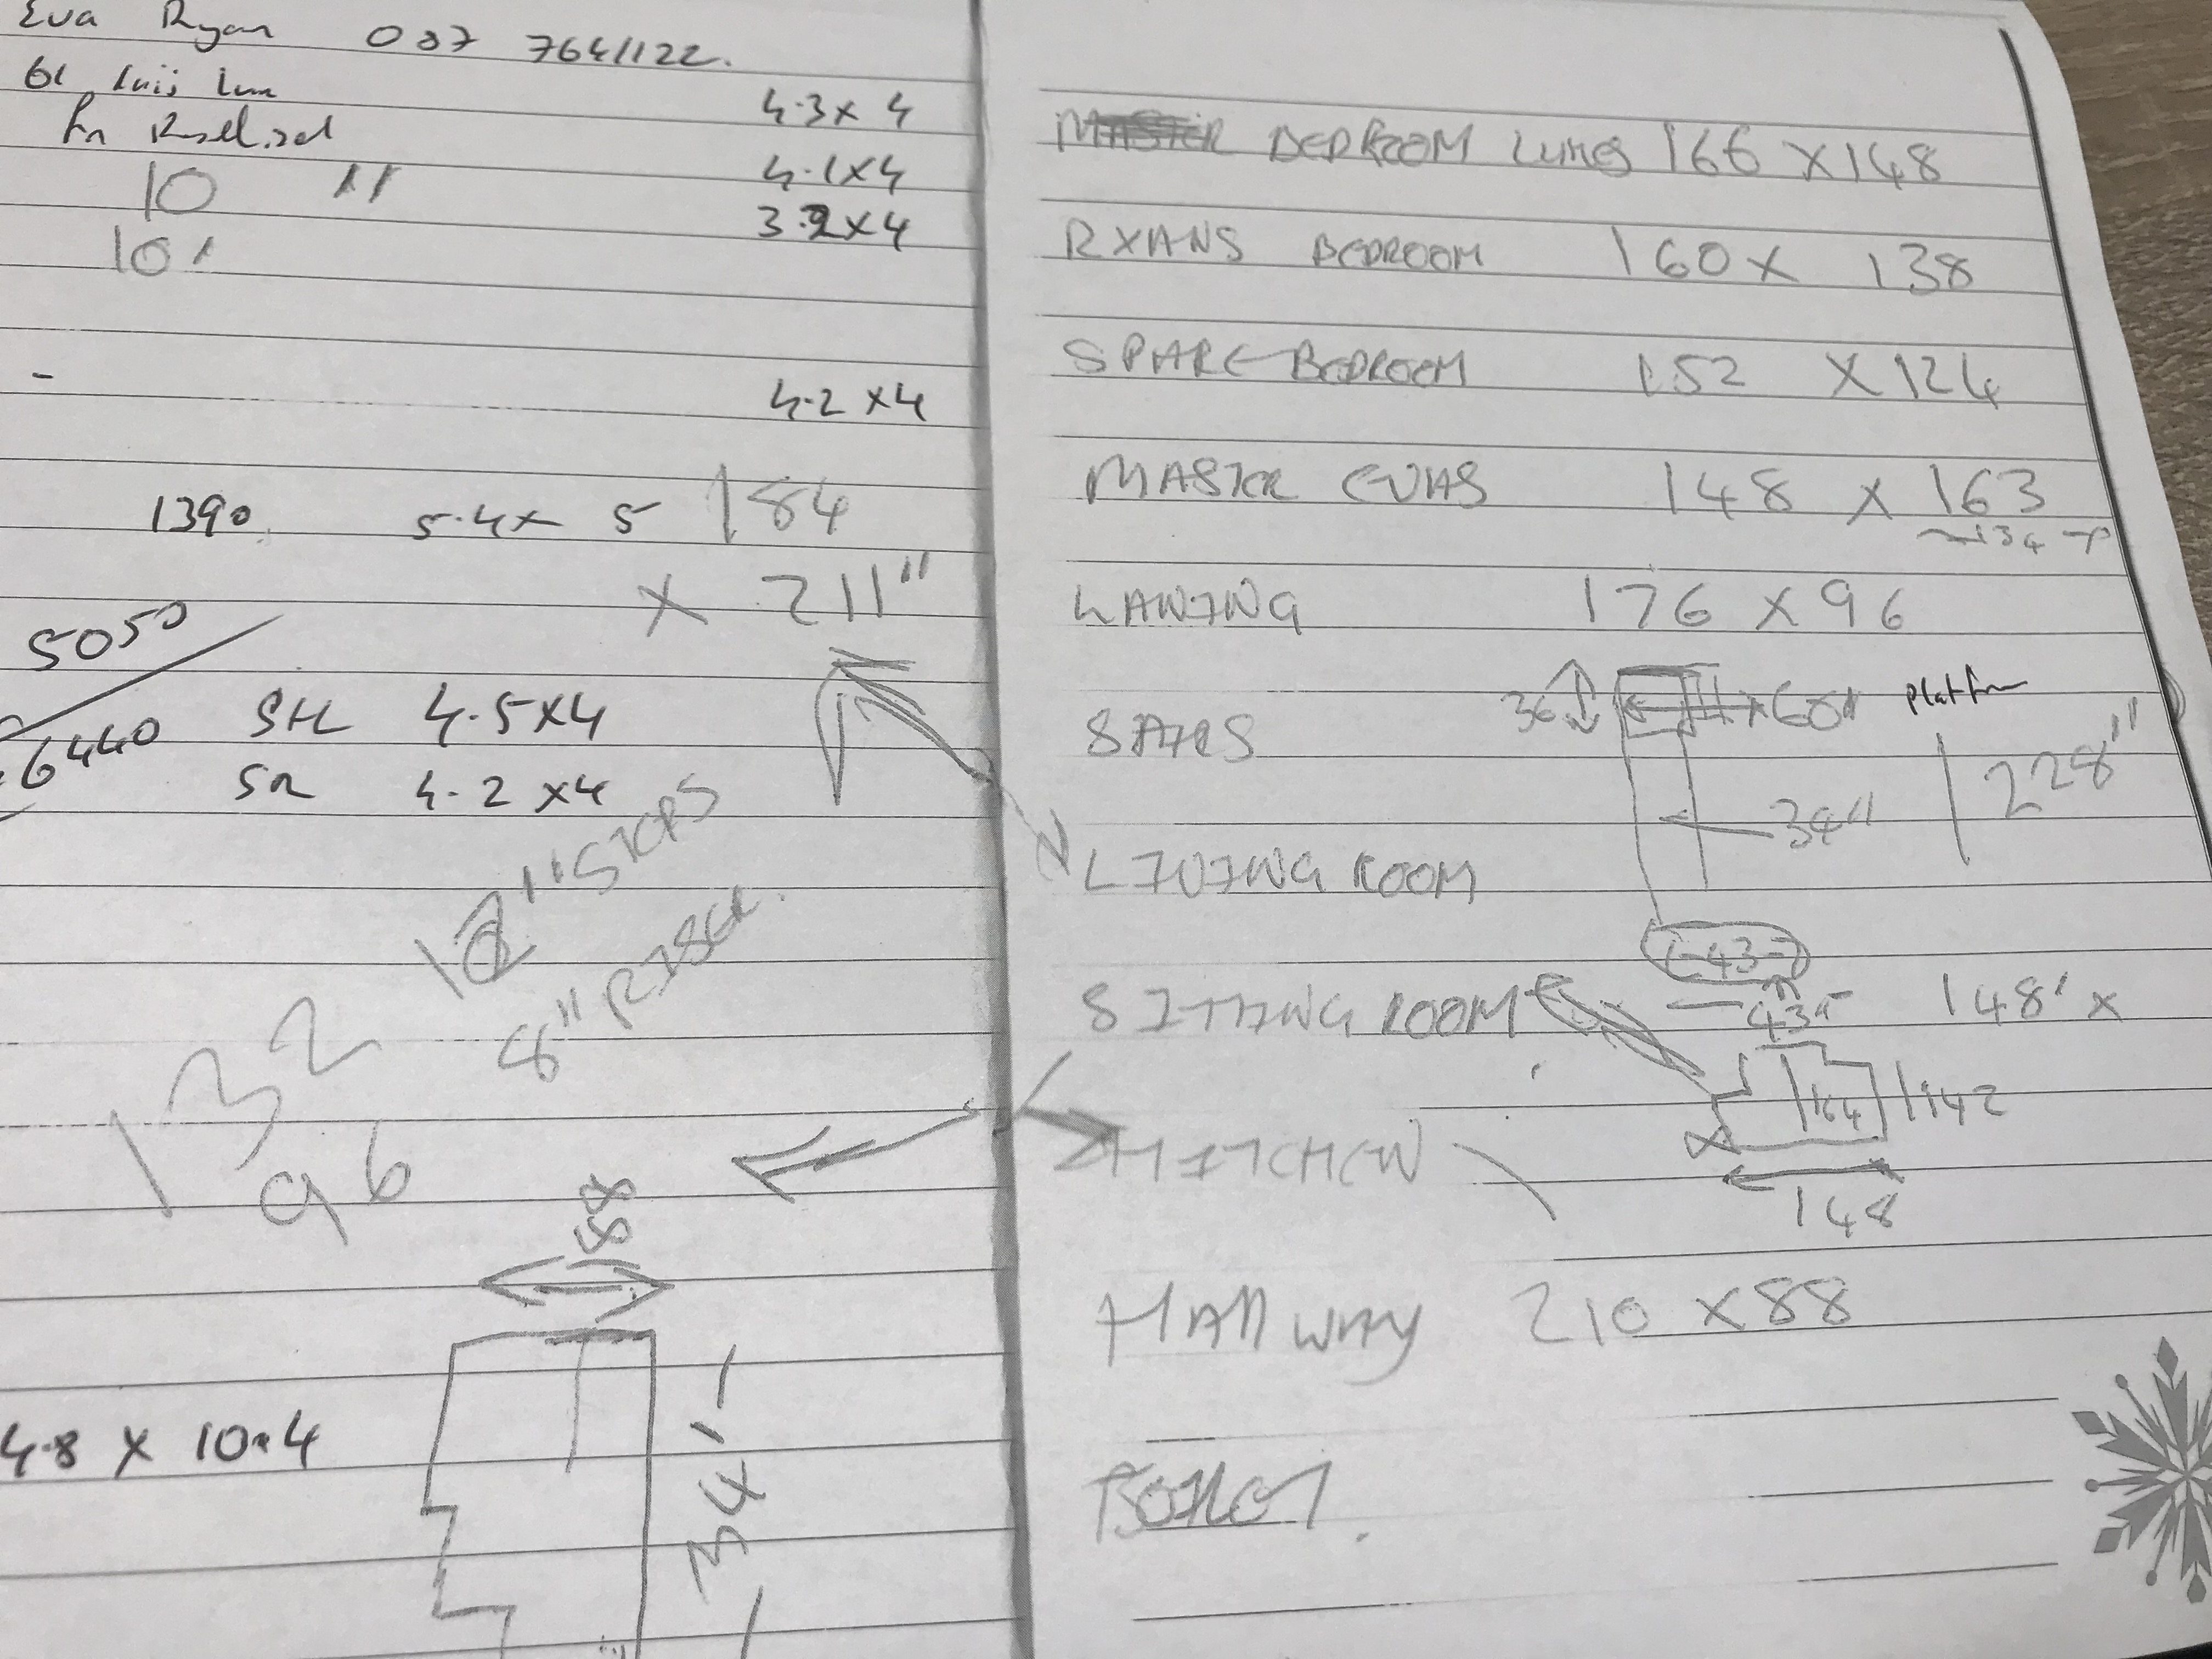 Eva Ryan 087 7641122.
61
4.3 x 4
10 11
4.1 x 4
3.2 x 4
10
4.2 x 4
1390 5.4 x 5 184
x 211"
5050
6440 4.5 x 4
SR 4.2 x 4
12" STEPS
8" RISER.
132
96
88
341
4.8 x 10.4
MASTER BEDROOM LUKES 166 X 148
RYANS BEDROOM 160 X 138
SPARE BEDROOM 152 X 124
MASTER EVAS 148 X 163
134
LANING 176 X 96
36 60" Platfrm
STAIRS
34" 228"
LIVING ROOM
43
SITTING ROOM 43" 148' x
164 142
KITCHEN
148
HALLWAY 210 X 88
TOILET.